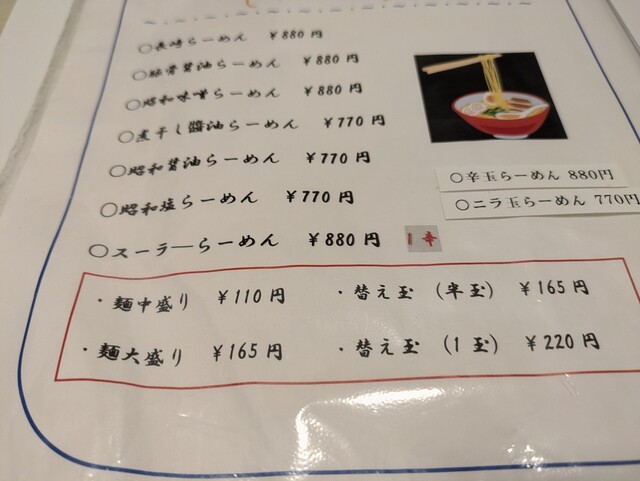 ○長崎らーめん ￥880 円
○豚骨醤油らーめん ￥880 円
○昭和味噌らーめん ￥880 円
○煮干し醬油らーめん ￥770 円
○昭和醤油らーめん ￥770 円
○昭和塩らーめん ￥770 円
○スーラ―らーめん ￥880 円
○辛玉らーめん 880円
○ニラ玉らーめん 770円
・麺中盛り ￥110 円 ・替え玉 (半玉) ￥165 円
・麺大盛り ￥165 円 ・替え玉 (1 玉) ￥220 円